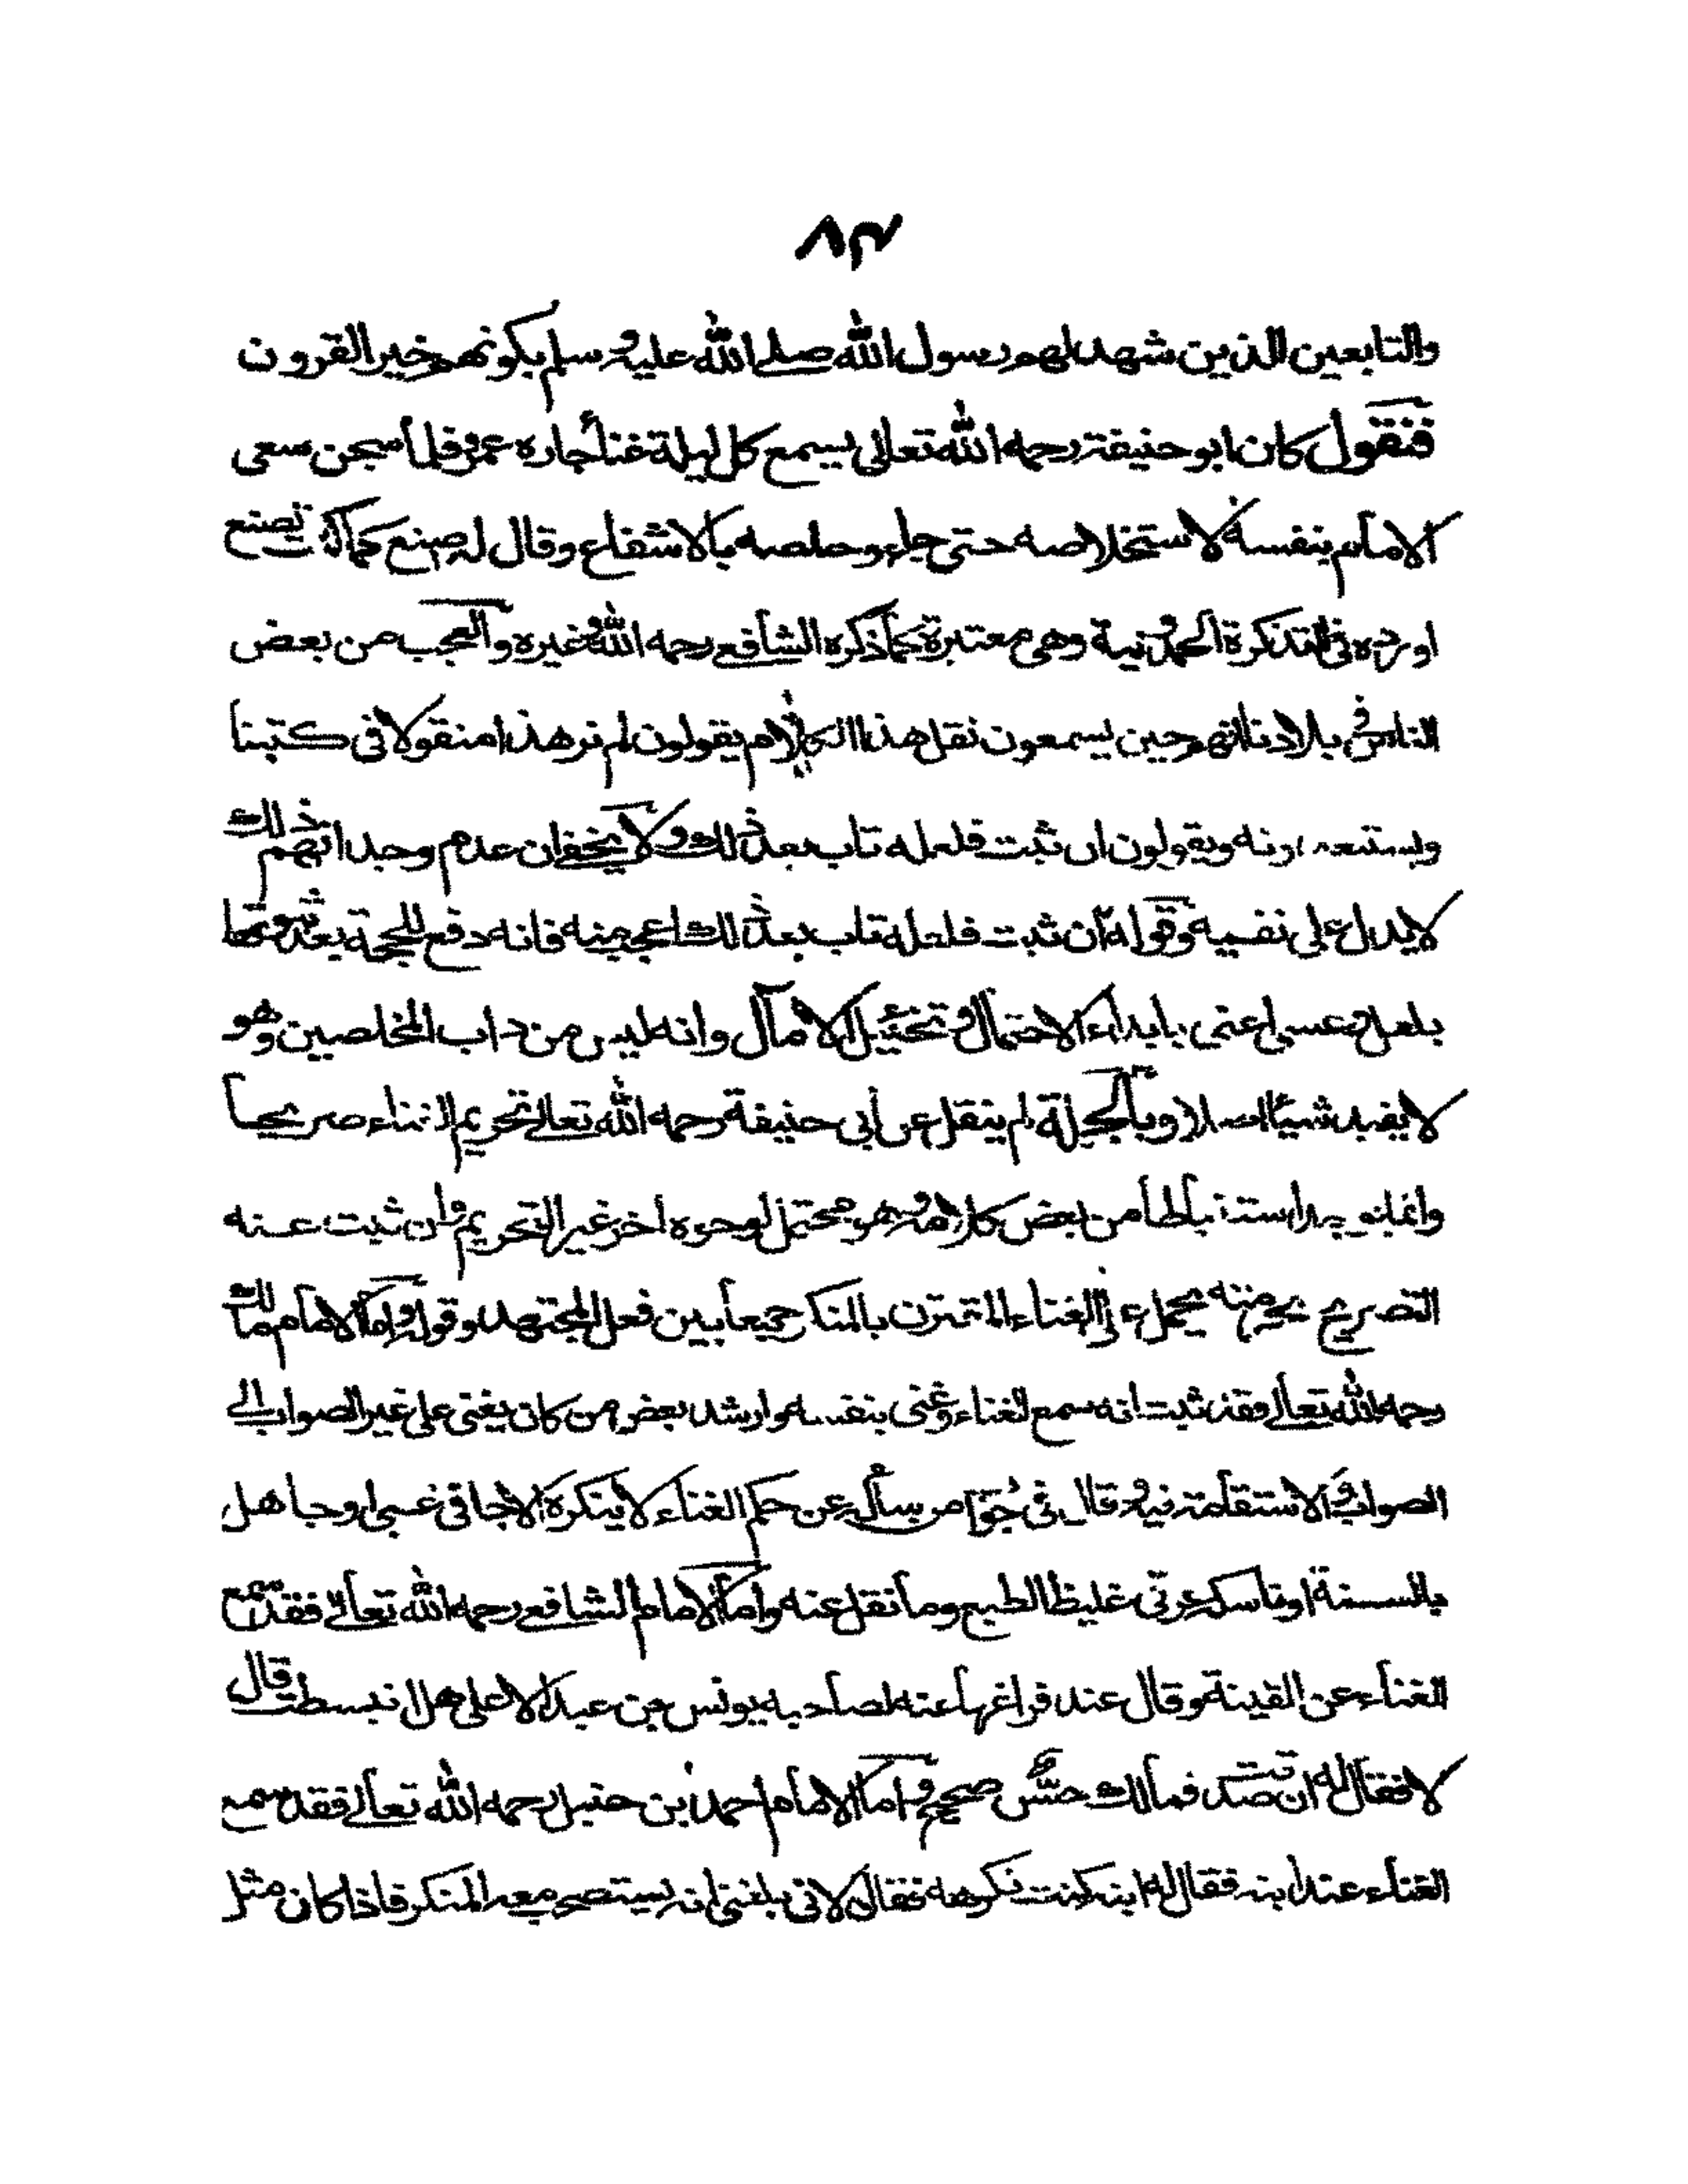 ٨٣
والتابعين الذين شهد لهم رسول الله صلے الله عليه وسلم بكونهم خير القرون
فنقول كان ابو حنيفة رحمه الله تعالى يسمع كل ليلة غنأ جاره عمرو فلمأ سجن سعى
الامام بنفسه لاستخلاصه حتى جاء وخلصه بالاشفاع وقال له صنع كمآ كنت تصنع
اورده فى التذكرة الحمدونية وهى معتبرة كمأ ذكره الشافعے رحمه الله وغيره والعجب من بعض
الناس فى بلادنا انهم حين يسمعون نقل هذا الكلام يقولون لم نر هذا منقولا فى كتبنا
ويستبعدونه ويقولون ان ثبت فلعله تاب بعد ذلك ولا يخفے ان عدم وجدانهم ذلك
لا يدل على نفيه وقوله ان ثبت فلعله تاب بعد ذلك اعجب منه فانه دفع للحجة بعد ثبوتها
بلعل وعسى اعنى بابداء الاحتمال وتخئيل الامآل وانه ليس من داب المخلصين وهو
لا يفيد شيئا اصلا وبالجملة لم ينقل عن أبى حنيفة رحمه الله تعالے تحريم الغناء صريحاً
وانما استنباطا من بعض كلامه وهو محتمل لوجوه اخر غير التحريم وان ثبت عنه
التصريح بحرمته يحمل على الغناء المقترن بالمنكر جمعا بين فعل المجتهد وقوله وامأ الامام مالك
رحمه الله تعالے فقد ثبت انه سمع الغناء وغنى بنفسه وارشد بعض من كان يغنى على غير الصواب الے
الصواب والاستقامة فيه وقال فى جواب من سأله عن حكم الغناء لا ينكره الا جافى غبى او جاهل
بالسنة او ناسك عرقى غليظ الطبع وما نقل عنه وامأ الامام الشافعے رحمه الله تعالے فقد سمع
الغناء عن القينة وقال عند فراغها عنه لصاحبه يونس بن عبد الاعلى هل انبسطت قال
لا فقال له ان صدقت فمالك حس صحيح وامأ الامام احمد بن حنبل رحمه الله تعالے فقد سمع
الغناء عند ابنه فقال له ابنه كنت تكرهه فقال لانى بلغنى انه يستصحب معه المنكر فاذا كان مثل